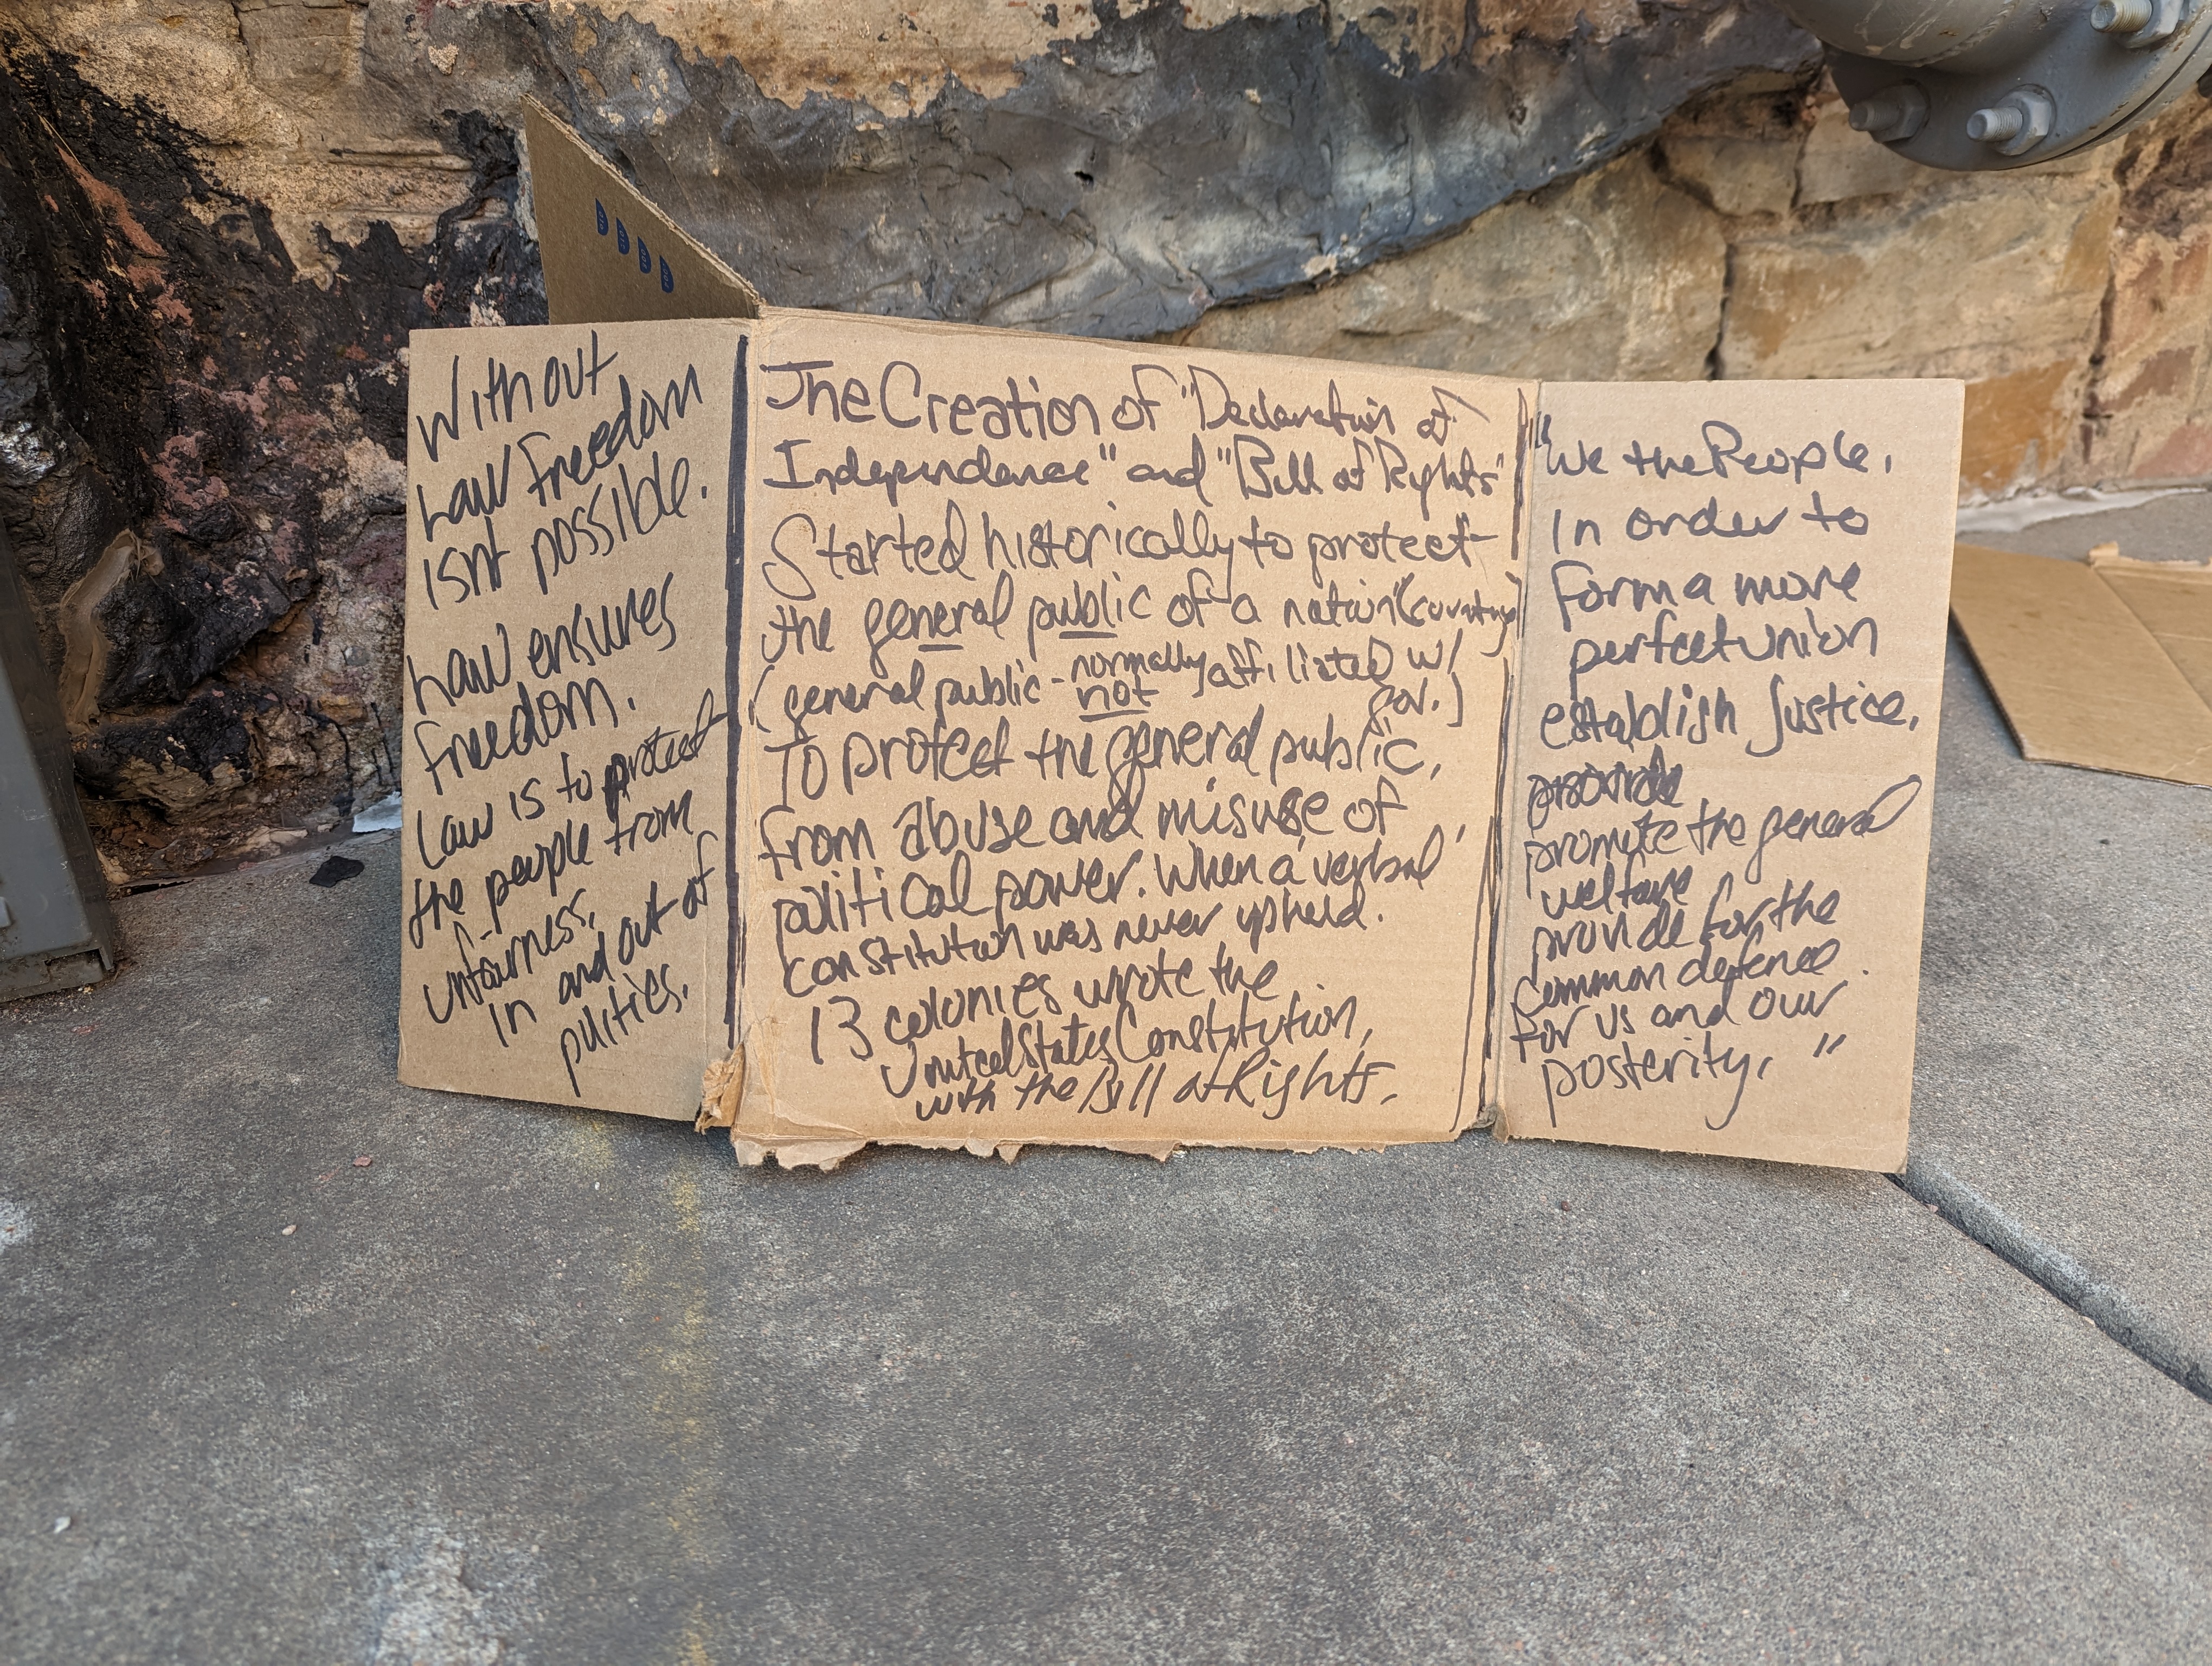 Without
Law freedom
isnt possible.
Law ensures
freedom.
Law is to protect
the people from
unfairness,
in and out of
politics.
The Creation of "Declaration of
Independence" and "Bill of Rights"
Started historically to protect
the general public of a nation (country)
(general public - normally not affiliated w/
gov.)
To protect the general public,
from abuse and misuse of
political power. When a verbal
constitution was never upheld.
13 colonies wrote the
United States Constitution,
with the Bill of Rights.
"We the People,
In order to
form a more
perfect union
establish justice,
promote the general
welfare
provide for the
common defence.
for us and our
posterity, "